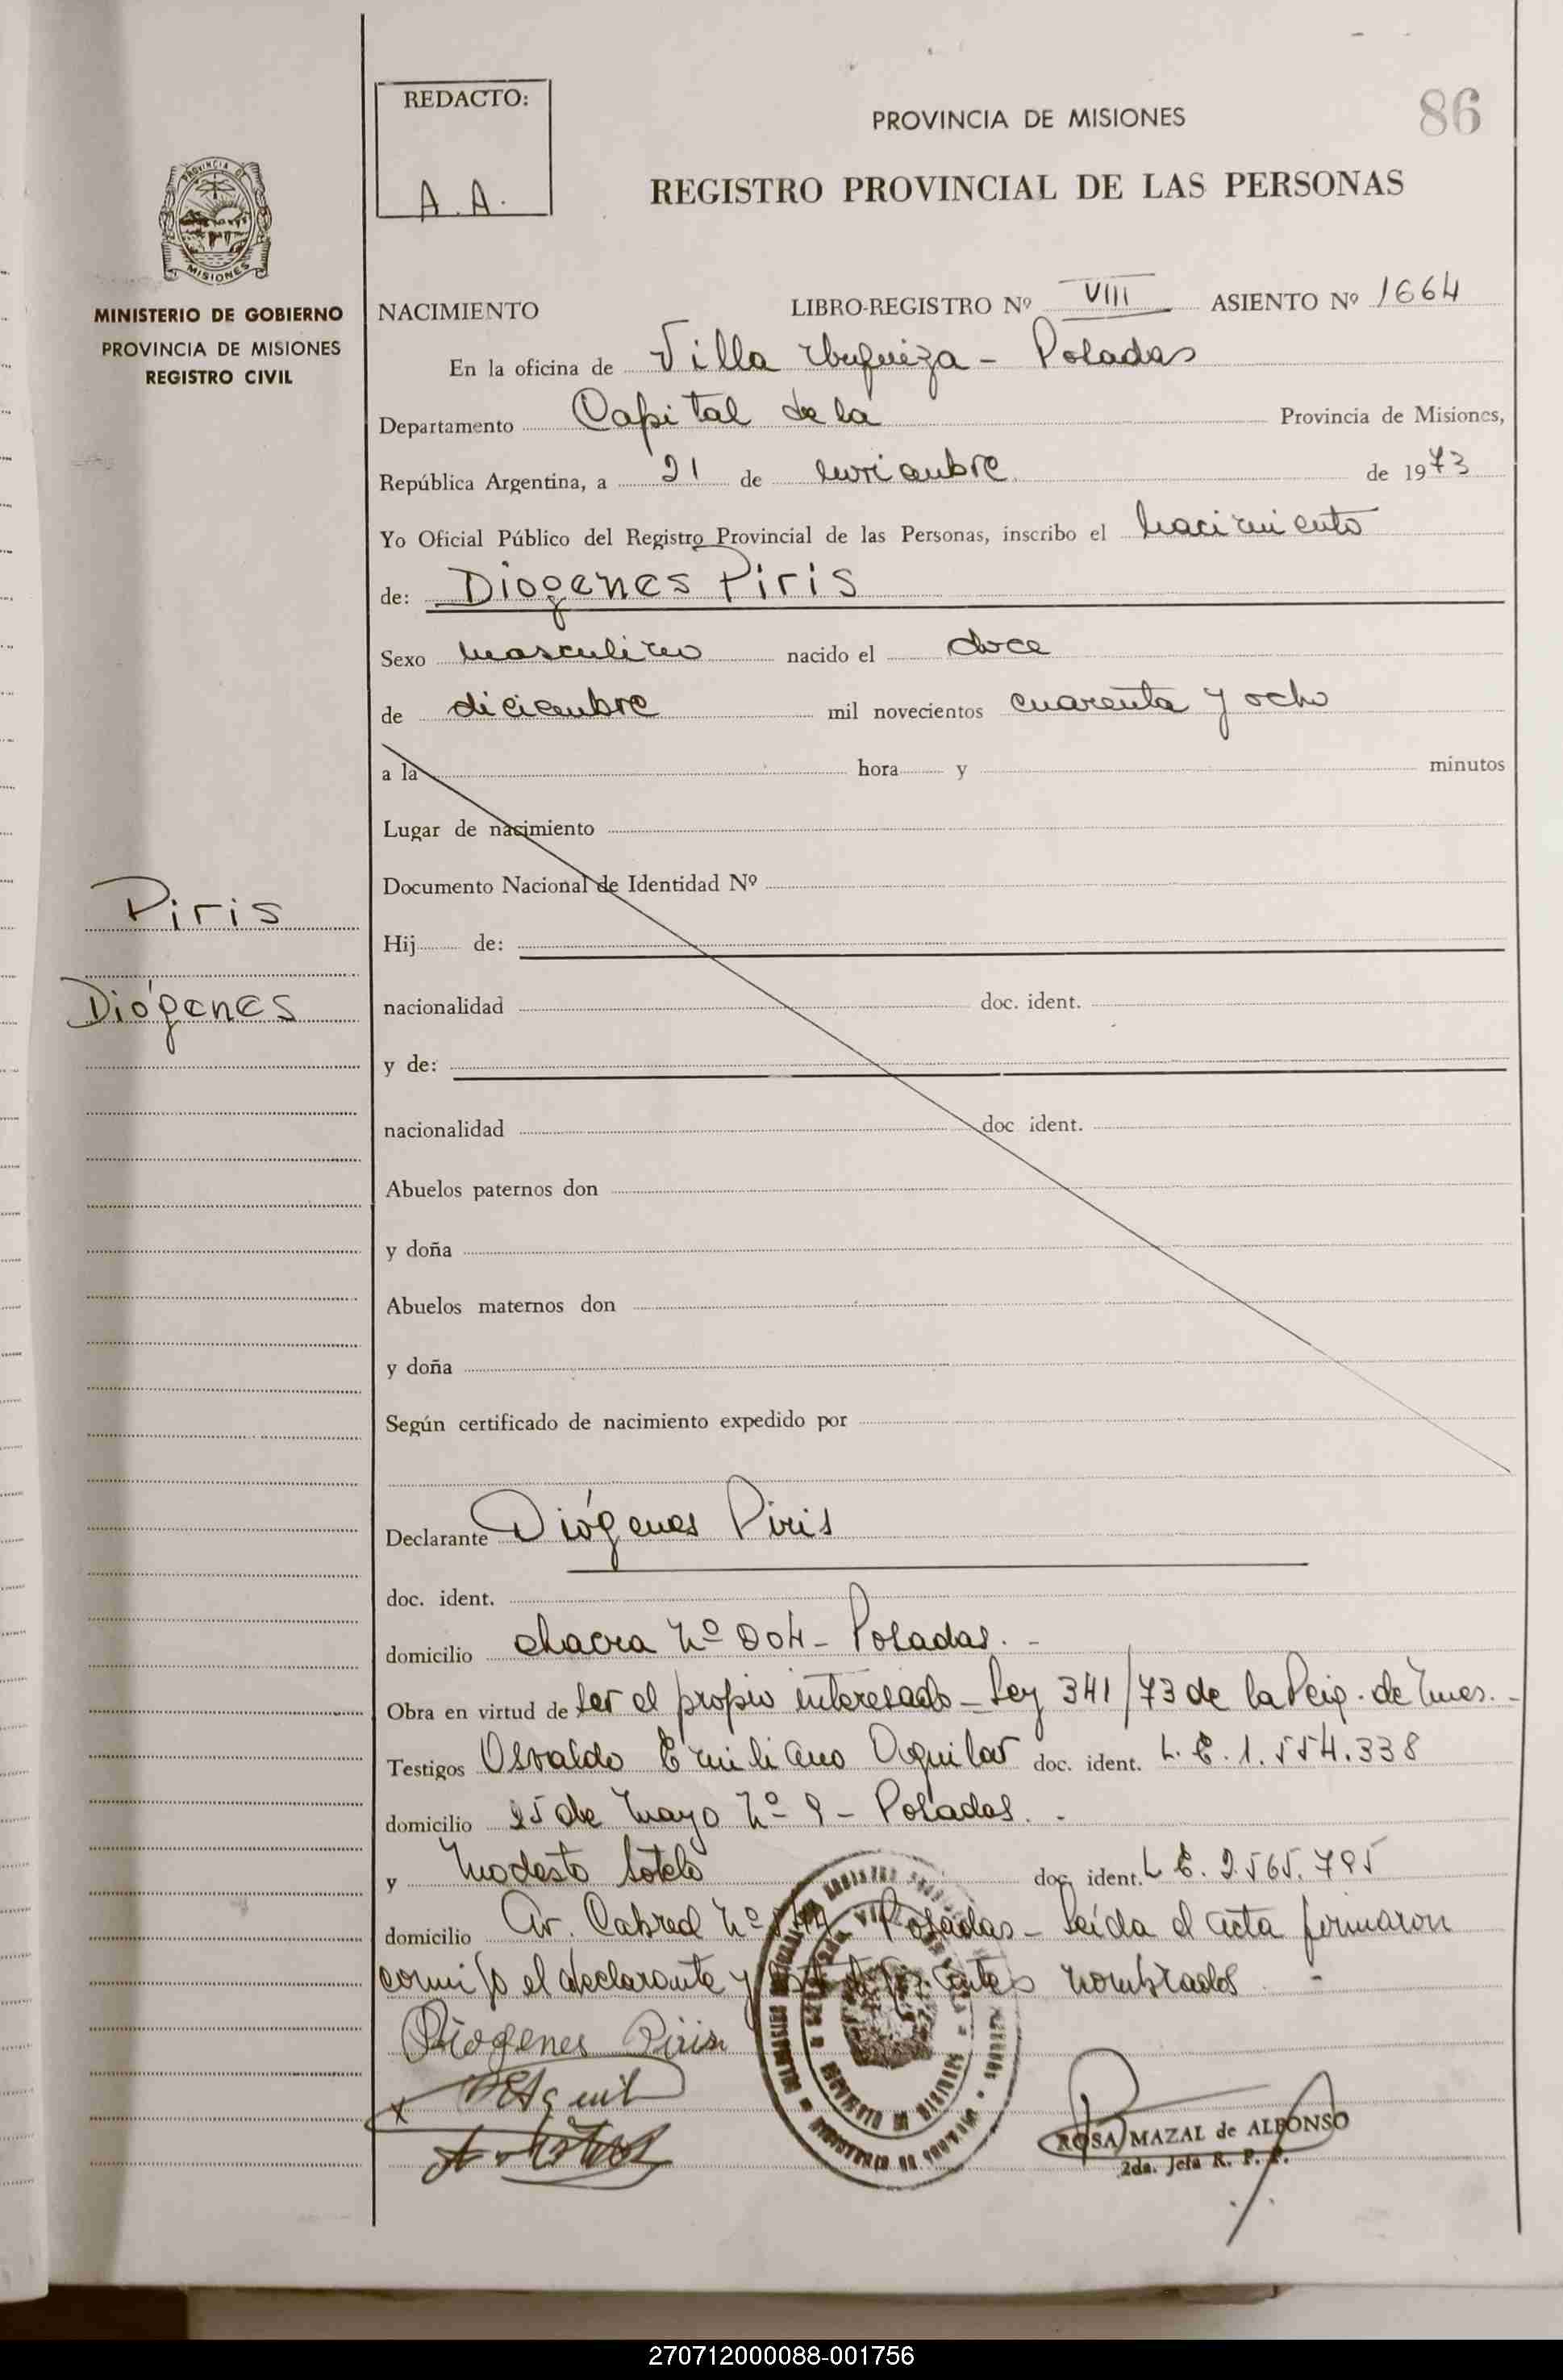 86
REDACTO:
A.A.
PROVINCIA DE MISIONES
REGISTRO PROVINCIAL DE LAS PERSONAS
PROVINCIA DE
MISIONES
MINISTERIO DE GOBIERNO
PROVINCIA DE MISIONES
REGISTRO CIVIL
NACIMIENTO LIBRO-REGISTRO Nº VIII ASIENTO Nº 1664
En la oficina de Villa Urquiza - Posadas
Departamento Capital de la Provincia de Misiones,
República Argentina, a 21 de noviembre de 1973
Yo Oficial Público del Registro Provincial de las Personas, inscribo el nacimiento
de: Diogenes Piris
Sexo masculino nacido el doce
de diciembre mil novecientos cuarenta y ocho
a la hora y minutos
Lugar de nacimiento
Documento Nacional de Identidad Nº
Piris
Hij de:
Diógenes
nacionalidad doc. ident.
y de:
nacionalidad doc ident.
Abuelos paternos don
y doña
Abuelos maternos don
y doña
Según certificado de nacimiento expedido por
Declarante Diógenes Piris
doc. ident.
domicilio chacra Nº 004 - Posadas. -
Obra en virtud de ser el propio interesado - Ley 341/73 de la
Testigos Osvaldo Emiliano Aguilar doc. ident. L. E. 1.554.338
domicilio 25 de Mayo Nº 9 - Posadas. -
y Modesto Sotelo doc. ident. L E. 2.565.795
domicilio Av. Cabred Nº Posadas - Leída el acta firmaron
conmigo el declarante y antes nombrados. -
Diogenes Piris
ROSA MAZAL de ALFONSO
2da. Jefa R. P. P.
270712000088-001756